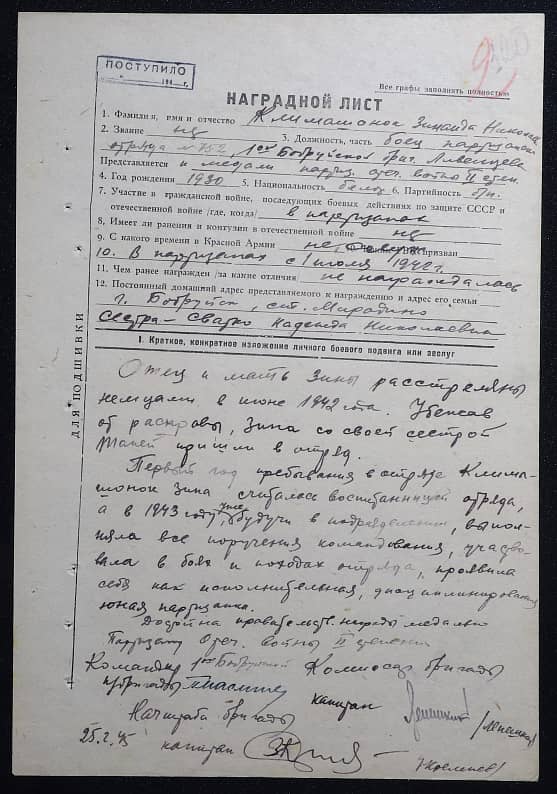 ПОСТУПИЛО
194 г.
Все графы заполнять полностью
НАГРАДНОЙ ЛИСТ
1. Фамилия, имя и отчество Климашонок Зинаида Никола
2. Звание нд 3. Должность, часть боец партизанск
отряда № 752 1ой Бобруйской бриг. Ливенцева
Представляется к медали партиз. отеч. войны II степ.
4. Год рождения 1930 5. Национальность белор 6. Партийность б/п.
7. Участие в гражданской войне, последующих боевых действиях по защите СССР и
отечественной войне /где, когда/ в партизанах
8. Имеет ли ранения и контузии в отечественной войне нд
9. С какого времени в Красной Армии не призван
10. В партизанах с 1 июля 1942 г.
11. Чем ранее награжден /за какие отличия/ не награждалась
12. Постоянный домашний адрес представляемого к награждению и адрес его семьи
г. Бобруйск, ст. Мирадино
Сестра – Сватко Надежда Николаевна
ДЛЯ ПОДШИВКИ
I. Краткое, конкретное изложение личного боевого подвига или заслуг
Отец и мать Зины расстреляны
немцами в июне 1942 года. Убежав
от расправы, Зина со своей сестрой
пришли в отряд.
Первый год пребывания в отряде Клима-
шонок Зина считалась воспитанницей отряда,
а в 1943 году уже, будучи в подразделении, выпол-
няла все поручения командования, участво-
вала в боях и походах отряда, проявила
себя как исполнительная, дисциплинированная
юная партизанка.
Достойна правительств. награды медалью
Партизану Отеч. войны II степени
Командир 1ой Бобруйской Комиссар бригады
п/бригады капитан /Лепешкин/
Начштаба бригады
25.2.45 капитан